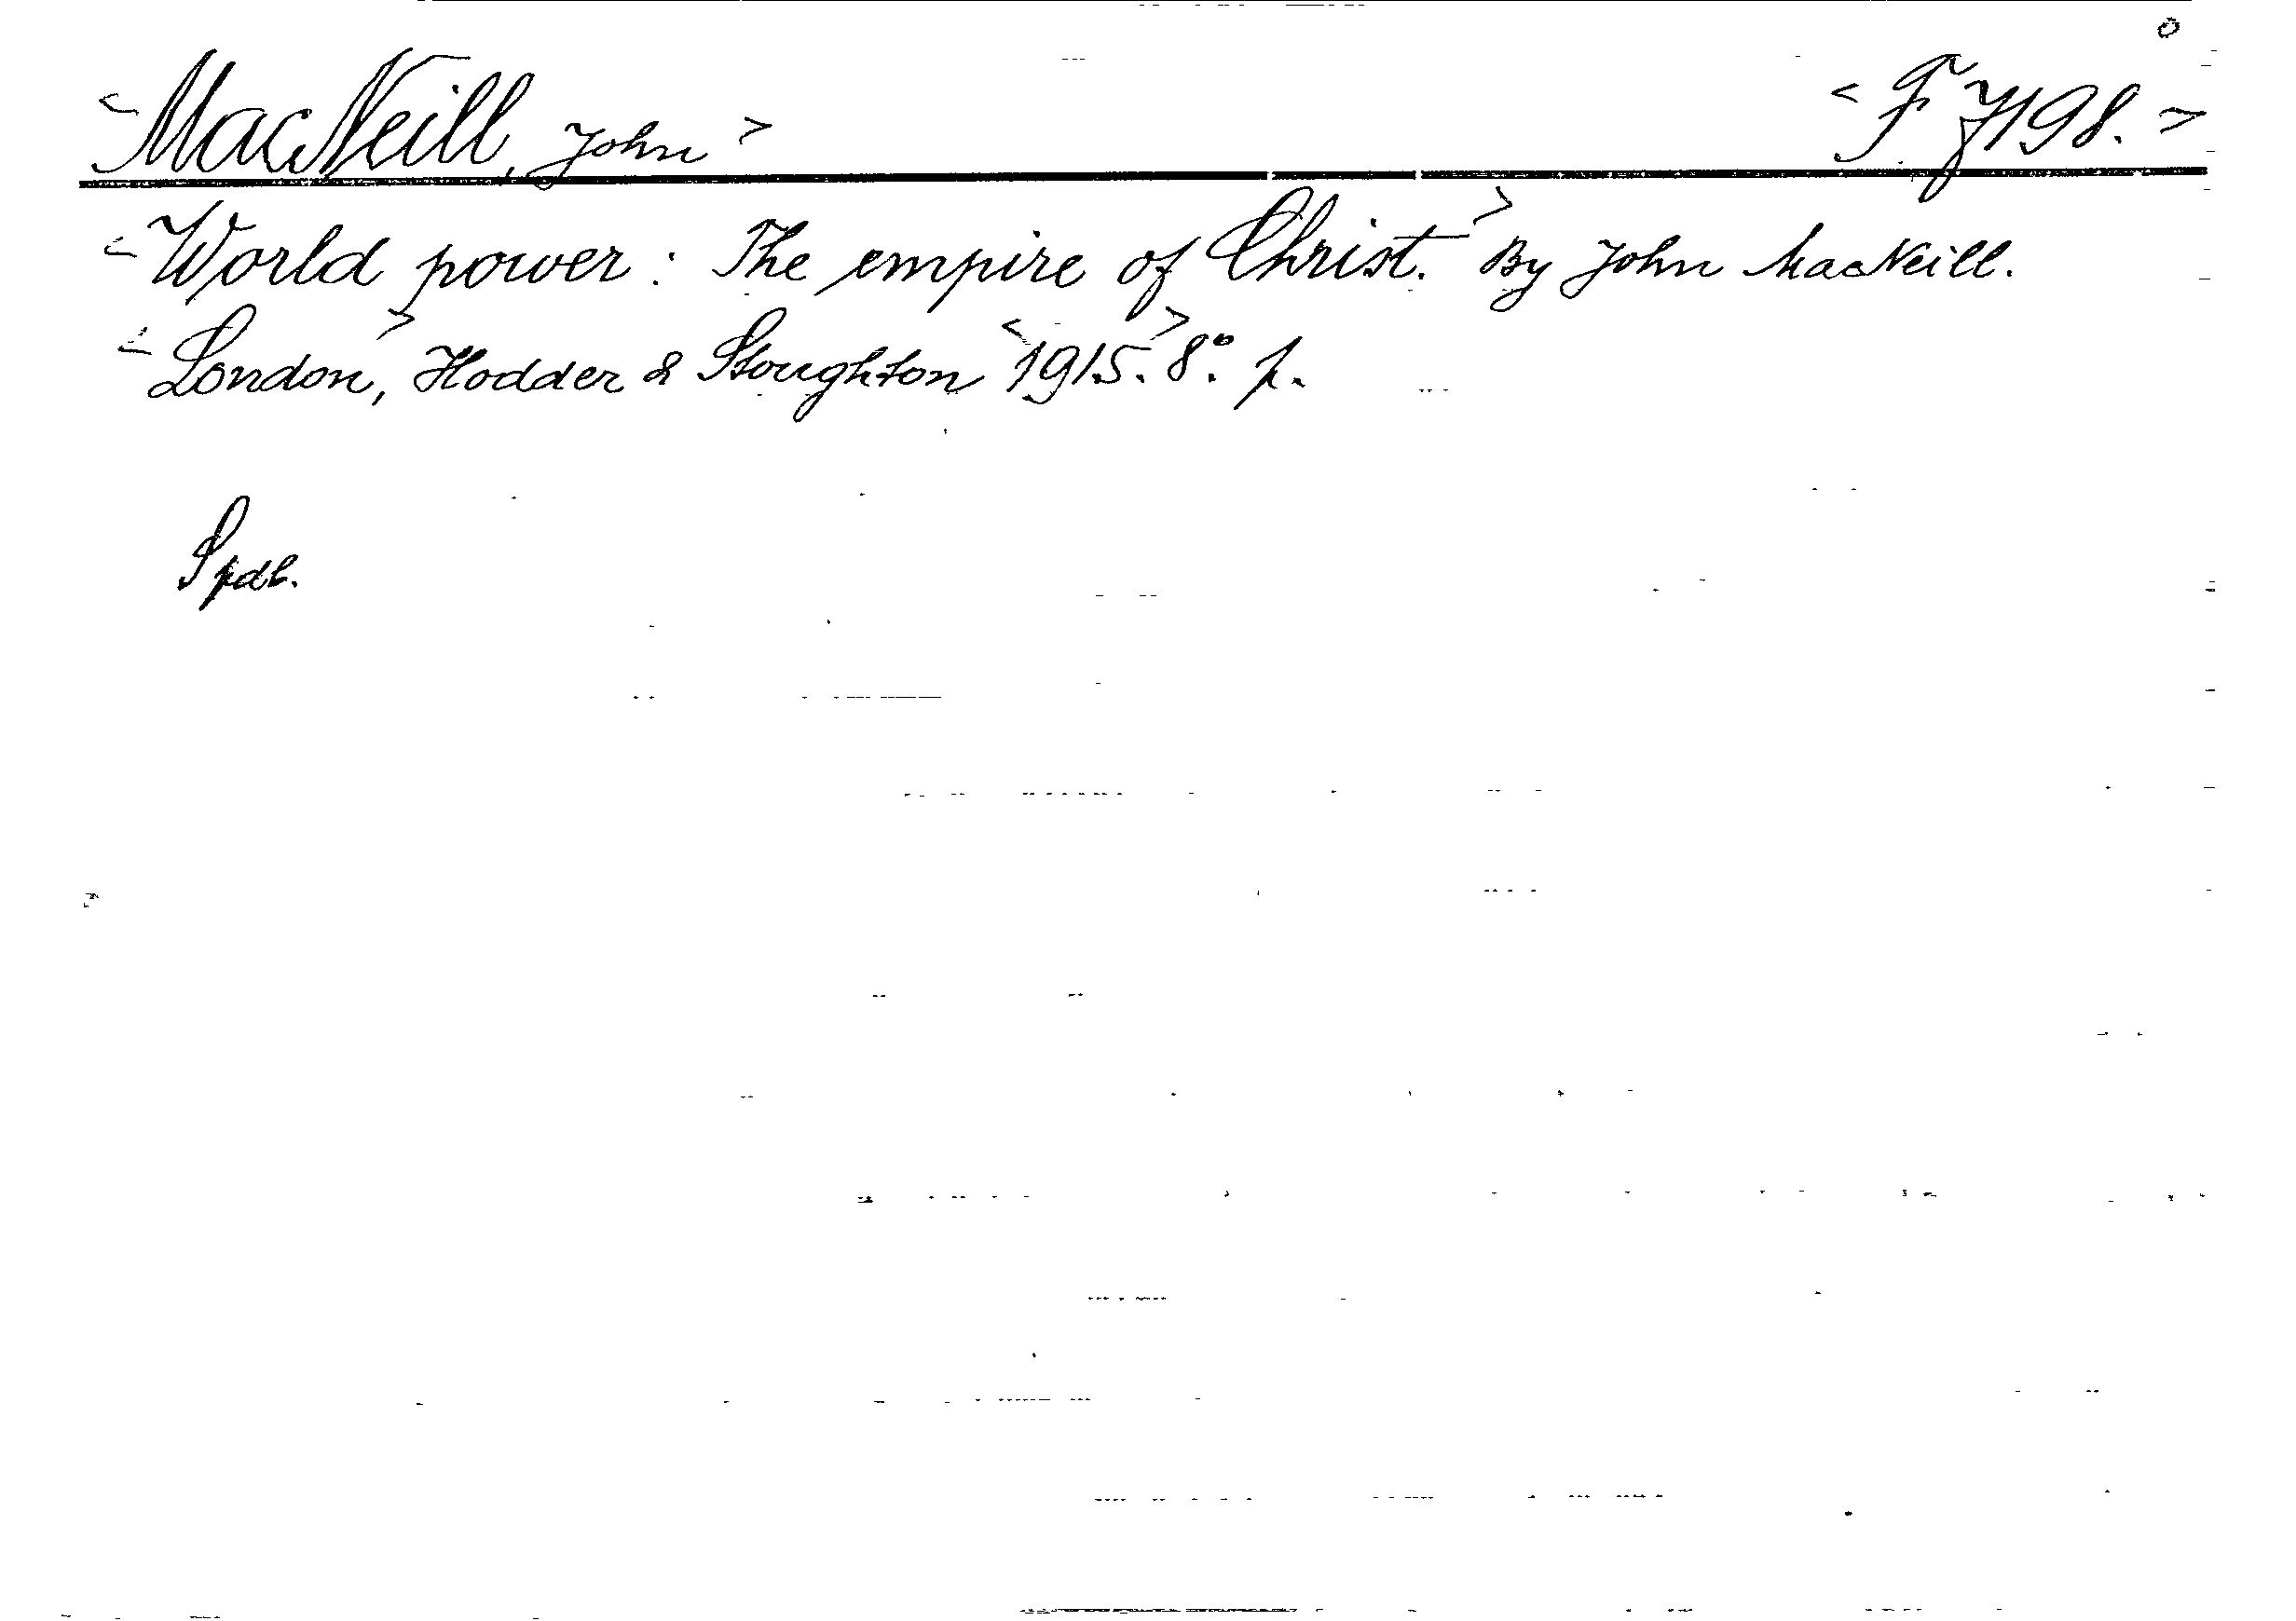 <MacNeill, John> <F 7198.>
<World power: The empire of Christ.> By John MacNeill.
<London,> Hodder & Stoughton <1915.> 8:o p.
Spdb.